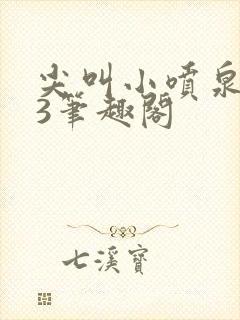 尖叫小噴泉
3筆趣閣
七溪寶